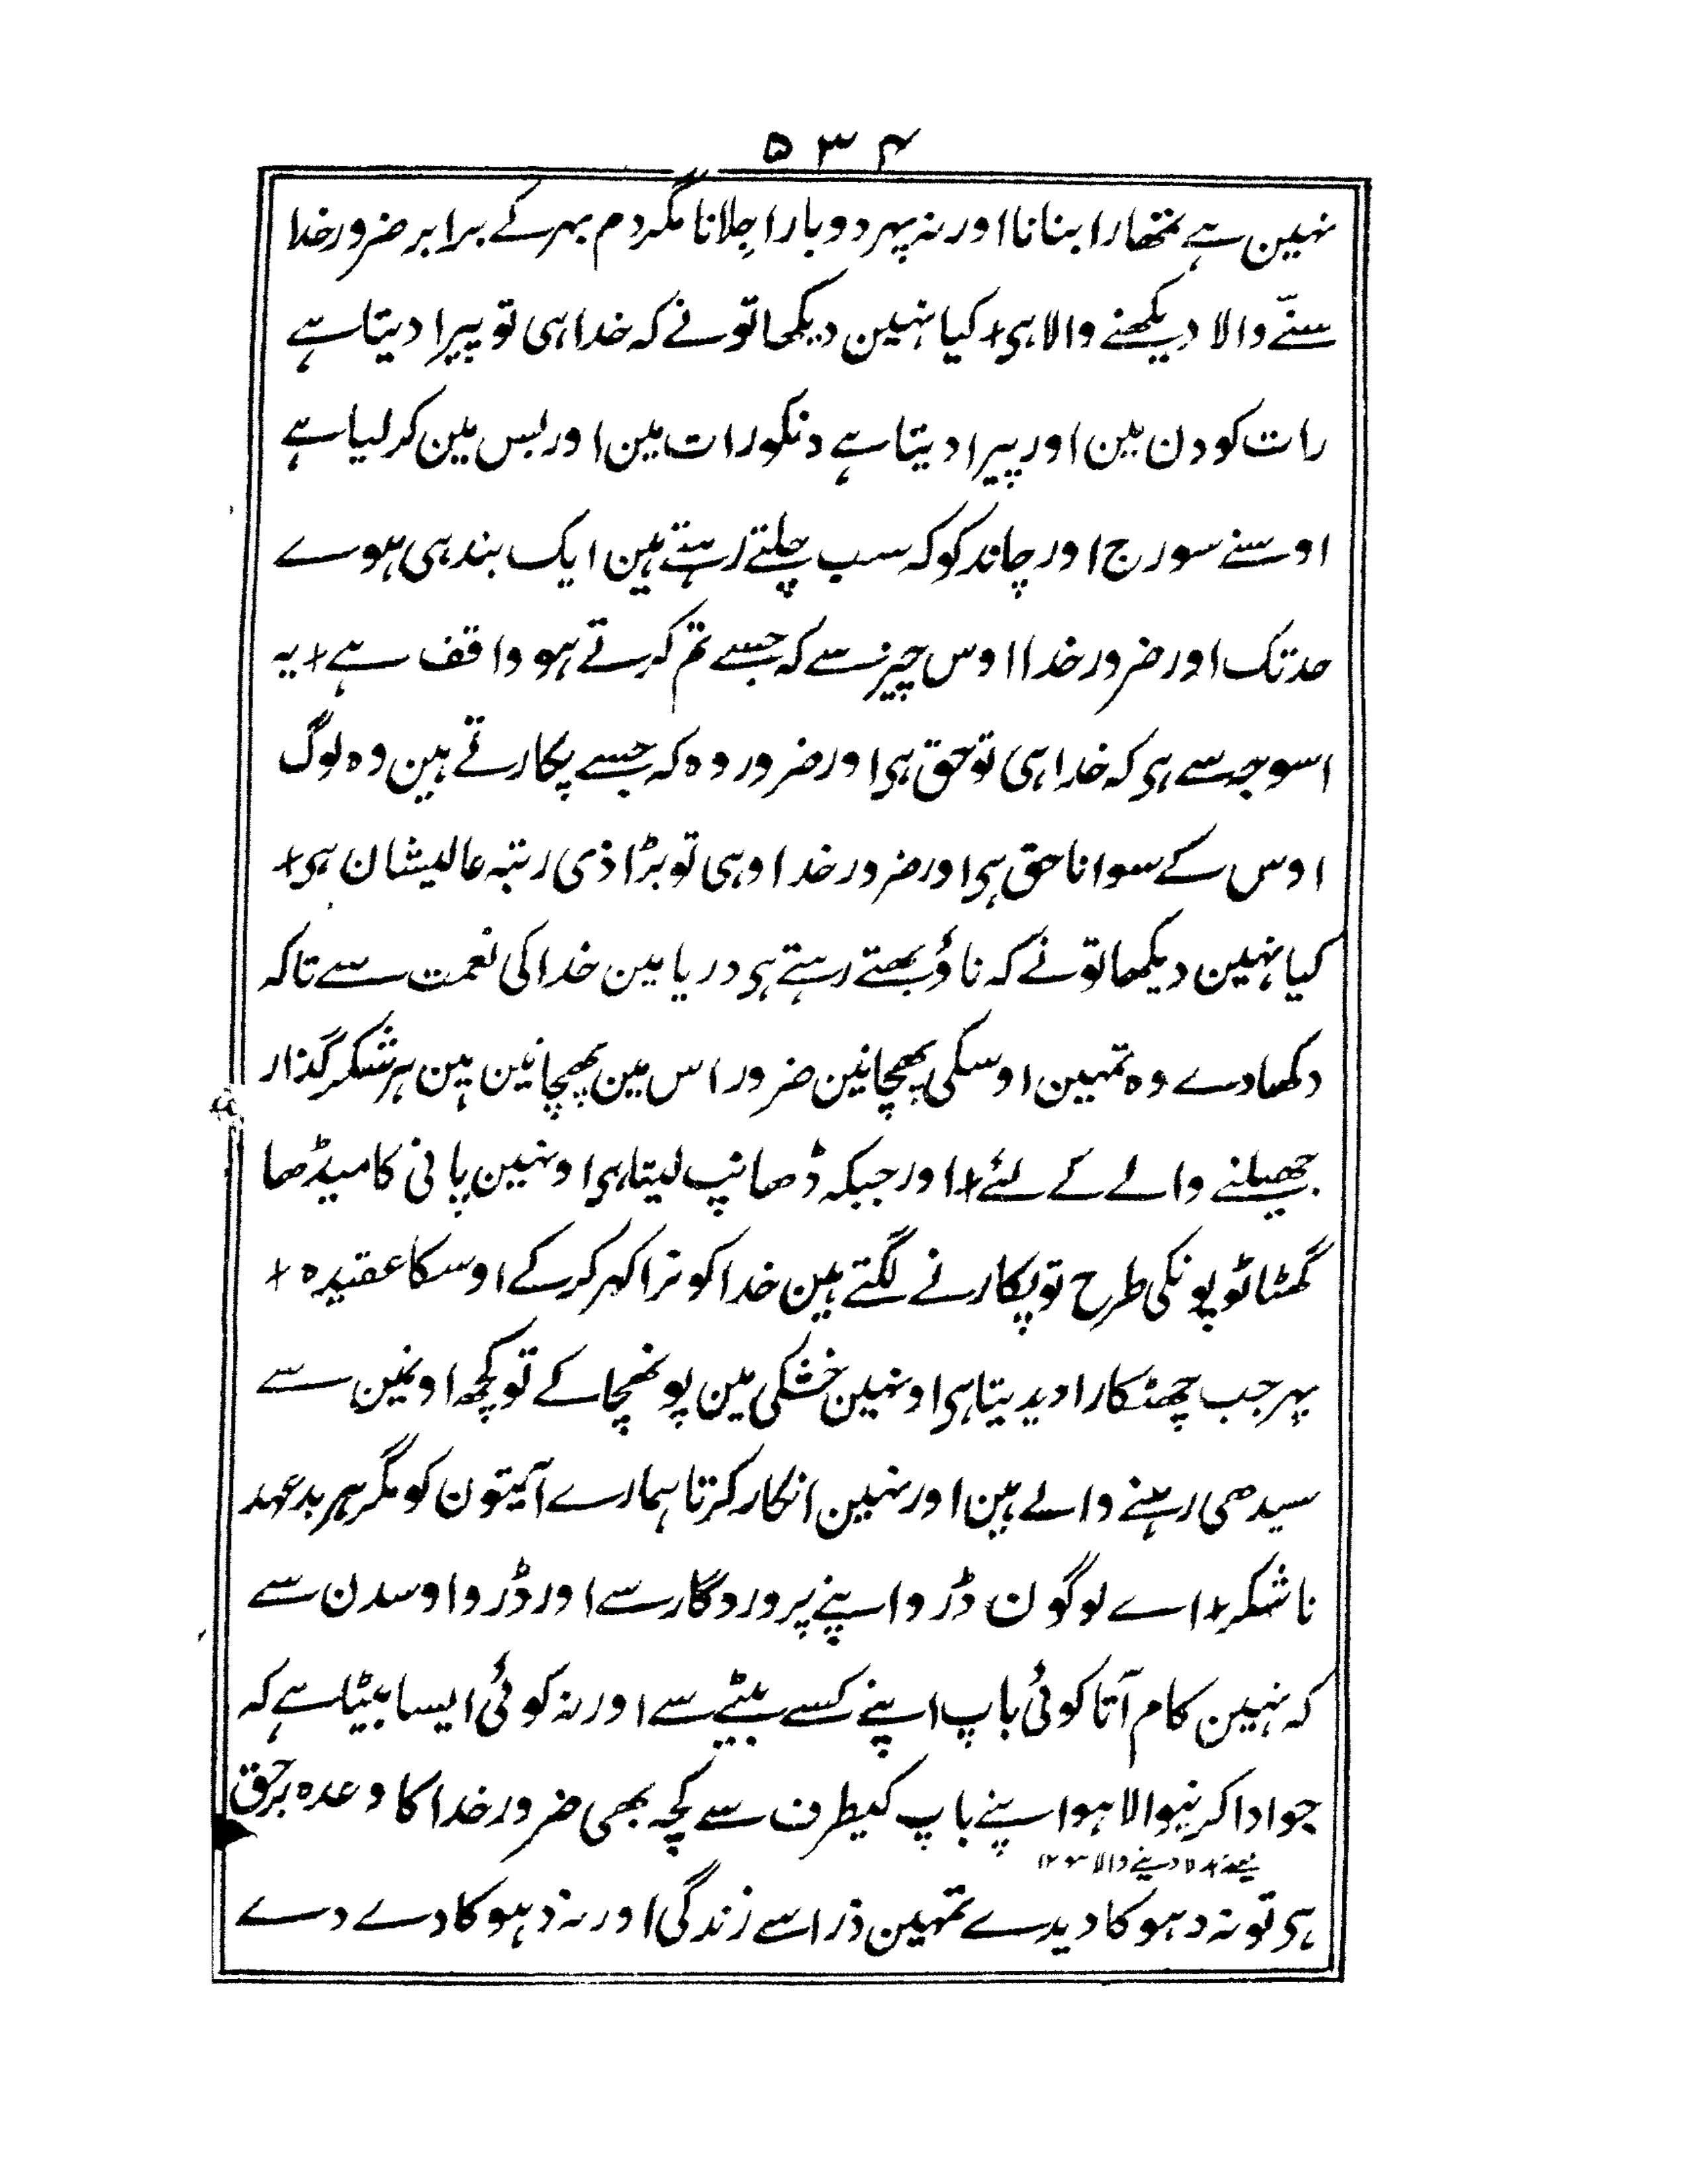 ۵۳۴
نہین ہے تمھارا بنانا اور نہ پہر دوبارا جِلانا مگر دم بہر کے برابر ضرور خدا
سنّے والا دیکھنے والا ہی+ کیا نہین دیکھا تو نے کہ خدا ہی تو پیرا دیتا ہے
رات کو دن مین اور پیرا دیتا ہے دنکو رات مین اور بس مین کر لیا ہے
اوسنے سورج اور چاند کو کہ سب چلتے رہتے ہین ایک بندہی ہوے
حد تک اور ضرور خدا اوس چیز سے کہ جسے تم کرتے ہو واقف ہے+ یہ
اسوجہ سے ہی کہ خدا ہی تو حق ہی اور ضرور وہ کہ جسے پکارتے ہین وہ لوگ
اوس کے سوا ناحق ہی اور ضرور خدا وہی تو بڑا ذی رتبہ عالیشان ہی+
کیا نہین دیکھا تو نے کہ ناؤ بھتے رہتے ہی دریا مین خدا کی نعمت سے تاکہ
دکھادے وہ تمہین اوسکی پھچانین ضرور اس مین پھچانین ہین ہر شکر گذار
جھیلنے والے کے لئے+ اور جبکہ ڈھانپ لیتا ہی اونہین پانی کا میڈھا
گھٹا ٹوپونکی طرح تو پکارنے لگتے ہین خدا کو نرا کہر کرکے اوسکا عقیدہ +
پہر جب چھٹکارا دیدیتا ہی اونہین خشکی مین پونھچا کے تو کچھ اونمین سے
سیدھی رہنے والے ہین اور نہین انکار کرتا ہمارے آیتون کو مگر ہر بد عہد
ناشکر+ اے لوگون ڈرو اپنے پروردگار سے اور ڈرو اوسدن سے
کہ نہین کام آتا کوئی باپ اپنے کسے بیٹے سے اور نہ کوئی ایسا بیٹا ہے کہ
جو ادا کرنیوالا ہو اپنے باپ کیطرف سے کچہ بھی ضرور خدا کا وعدہ برحق
دینے والا ۱۲
ہی تو نہ دہوکا دیدے تمہین ذرا سے زندگی اور نہ دہوکا دے دے